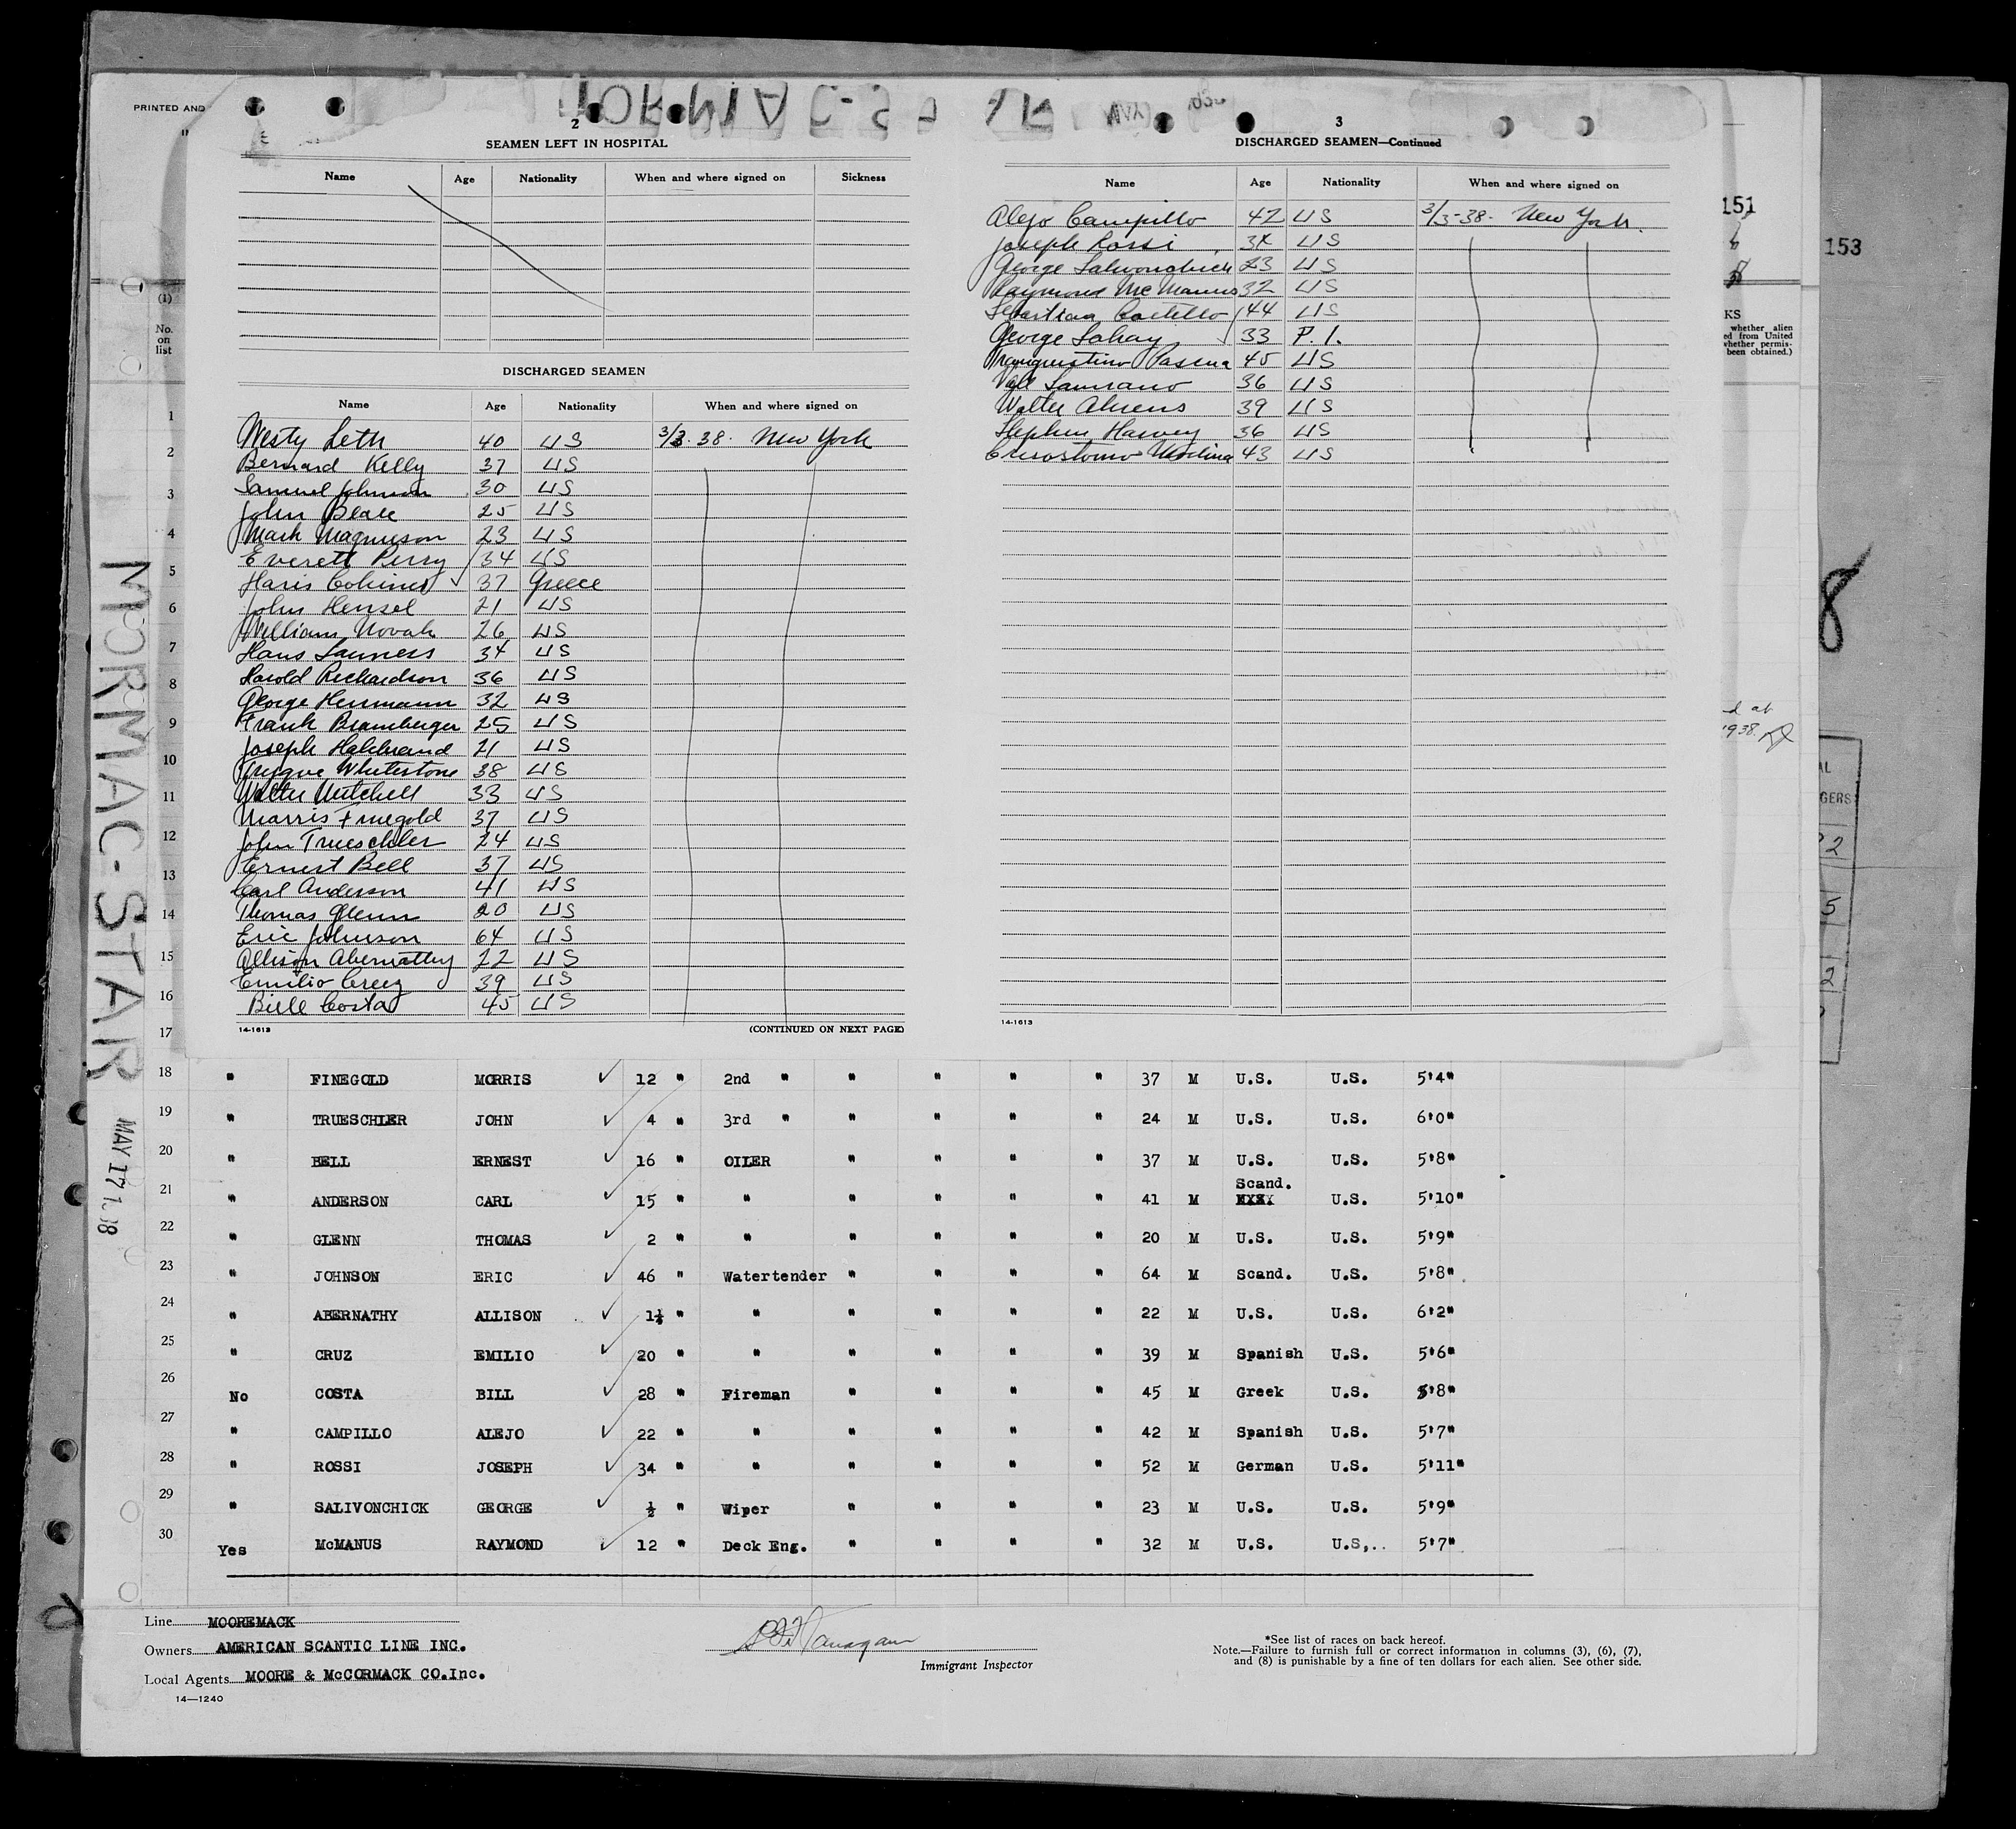 PRINTED AND
151
153
2
SEAMEN LEFT IN HOSPITAL
Name Age Nationality When and where signed on Sickness
DISCHARGED SEAMEN
Name Age Nationality When and where signed on
Westy Leth 40 US 3/3-38. New York
Bernard Kelly 37 US
Samuel Johnson 30 US
John Beale 25 US
Mark Magnuson 23 US
Everett Perry 34 US
Haris 37 Greece
John Hensel 21 US
William Novak 26 US
Hans Launess 34 US
Harold Richardson 36 US
George Herrmann 32 US
Frank Bramberger 25 US
Joseph 21 US
Trygve Whitestone 38 US
Walter Mitchell 33 US
Morris Finegold 37 US
John Trueschler 24 US
Ernest Bell 37 US
Carl Anderson 41 US
Thomas Glenn 20 US
Eric Johnson 64 US
Allison Abernathy 22 US
Emilio Cruz 39 US
Bill Costa 45 US
14-1613
(CONTINUED ON NEXT PAGE)
3
DISCHARGED SEAMEN—Continued
Name Age Nationality When and where signed on
Alejo Campillo 42 US 3/3-38. New York.
Joseph Rossi US
George Salivonchick 23 US
Raymond McManus 32 US
Sebastian Castillo 44 US
George 33 P.I.
Pascua 45 US
36 US
Walter Ahrens 39 US
Stephen Harvey 36 US
Crisostomo Medina 43 US
14-1613
(1)
No.
on
list
1
2
3
4
5
6
7
8
9
10
11
12
13
14
15
16
17
KS
whether alien
ed from United
whether permis-
been obtained.)
d at
1938.
8
AL
GERS
MORMAC-STAR MAY 17 1938
18 " FINEGOLD MORRIS 12 " 2nd " " " " " 37 M U.S. U.S. 5'4"
19 " TRUESCHLER JOHN 4 " 3rd " " " " " 24 M U.S. U.S. 6'0"
20 " BELL ERNEST 16 " OILER " " " " 37 M U.S. U.S. 5'8"
21 " ANDERSON CARL 15 " " " " " " 41 M Scand. U.S. 5'10"
22 " GLENN THOMAS 2 " " " " " " 20 M U.S. U.S. 5'9"
23 " JOHNSON ERIC 46 " Watertender " " " " 64 M Scand. U.S. 5'8"
24 " ABERNATHY ALLISON 1½ " " " " " " 22 M U.S. U.S. 6'2"
25 " CRUZ EMILIO 20 " " " " " " 39 M Spanish U.S. 5'6"
26 No COSTA BILL 28 " Fireman " " " " 45 M Greek U.S. 5'8"
27 " CAMPILLO ALEJO 22 " " " " " " 42 M Spanish U.S. 5'7"
28 " ROSSI JOSEPH 34 " " " " " " 52 M German U.S. 5'11"
29 " SALIVONCHICK GEORGE ½ " Wiper " " " " 23 M U.S. U.S. 5'9"
30 Yes McMANUS RAYMOND 12 " Deck Eng. " " " " 32 M U.S. U.S,.. 5'7"
Line MOOREMACK
Owners AMERICAN SCANTIC LINE INC.
Local Agents MOORE & McCORMACK CO.Inc.
14—1240
Immigrant Inspector
*See list of races on back hereof.
Note.—Failure to furnish full or correct information in columns (3), (6), (7),
and (8) is punishable by a fine of ten dollars for each alien. See other side.